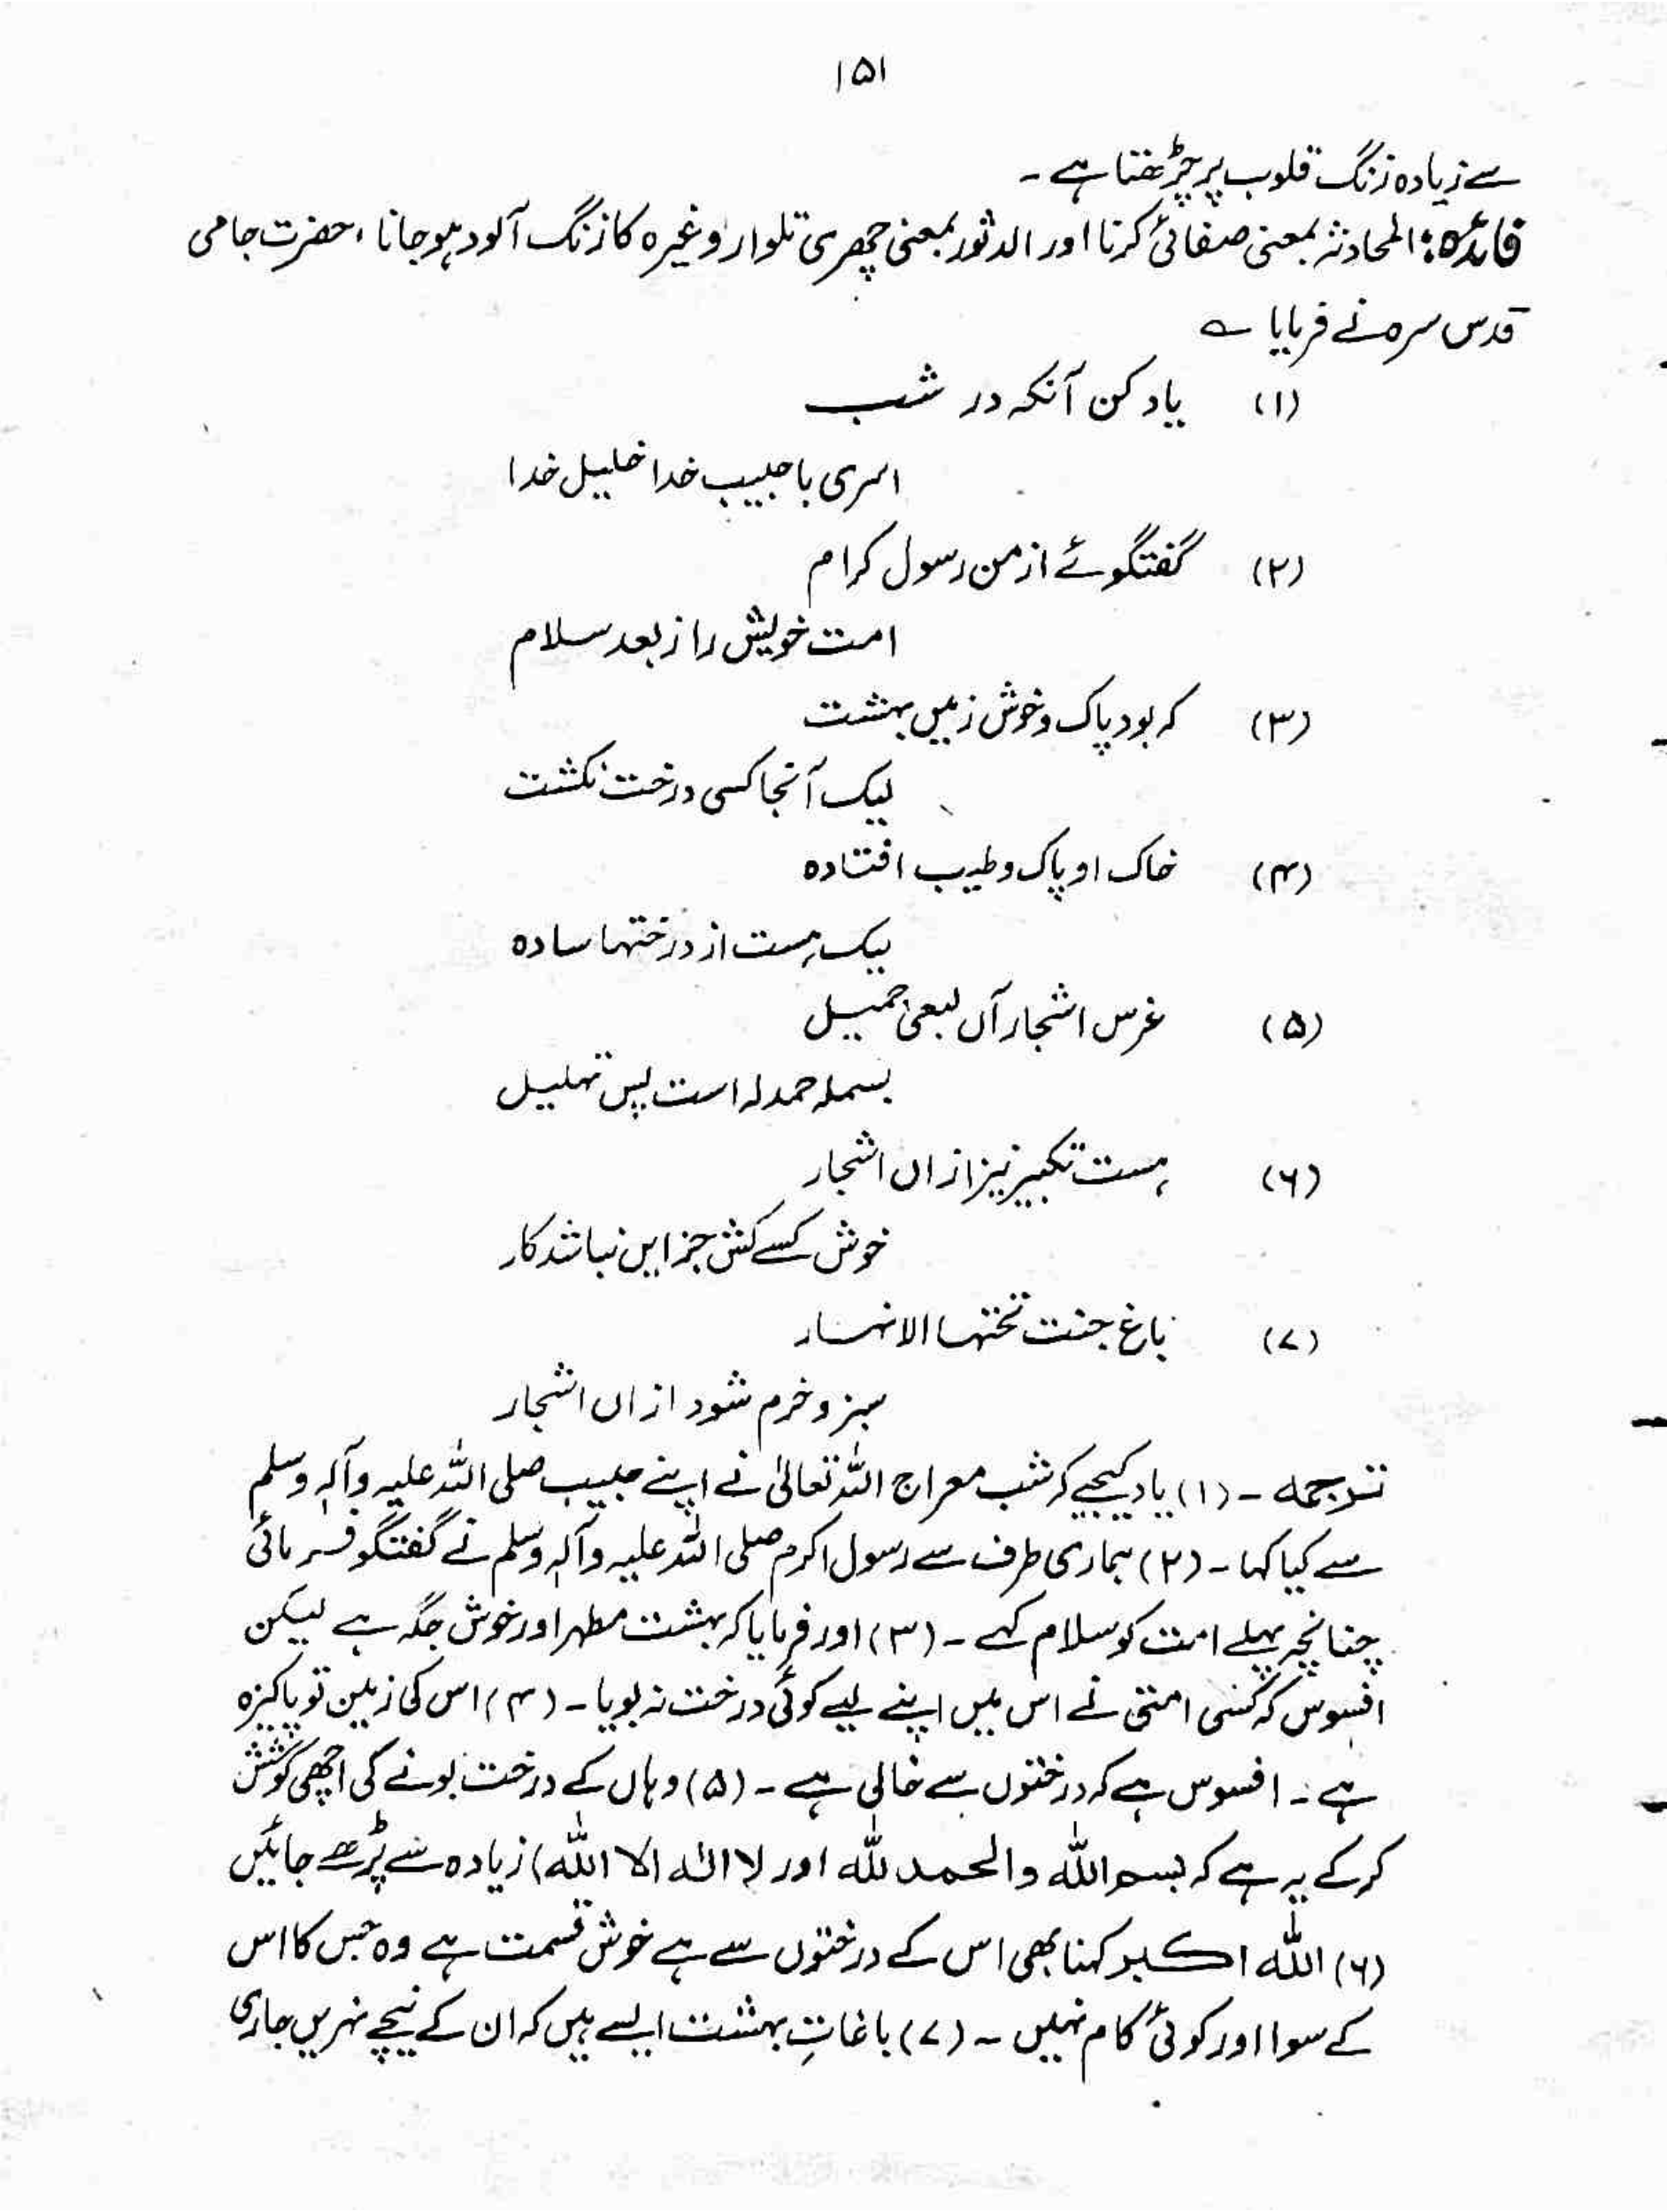 ۱۵۱
سے زیادہ زنگ قلوب پر چڑھتا ہے ۔
فائدہ: المحادثہ بمعنی صفائی کرنا اور الدثور بمعنی چھری تلوار وغیرہ کا زنگ آلود ہو جانا ، حضرت جامی
قدس سرہ نے فرمایا ؎
(۱) یاد کن آنکہ در شب
اسری با حبیب خدا خلیل خدا
(۲) گفتگوئے از من رسول کرام
امت خویش را ز بعد سلام
(۳) کہ بود پاک و خوش زمیں بہشت
لیک آنجا کسی درخت نکشت
(۴) خاک او پاک و طیب افتادہ
لیک ہست از درختہا سادہ
(۵) غرس اشجار آں بسعی جمیل
بسملہ حمدلہ است پس تہلیل
(۶) ہست تکبیر نیز ازاں اشجار
خوش کسے کش جز ایں نباشد کار
(۷) باغ جنت تحتہا الانہار
سبز و خرم شود ازاں اشجار
ترجمہ ۔ (۱) یاد کیجیے کہ شب معراج اللہ تعالیٰ نے اپنے حبیب صلی اللہ علیہ وآلہٖ وسلم
سے کیا کہا ۔ (۲) ہماری طرف سے رسول اکرم صلی اللہ علیہ وآلہٖ وسلم نے گفتگو فرمائی
چنانچہ پہلے امت کو سلام کہے ۔ (۳) اور فرمایا کہ بہشت مطہر اور خوش جگہ ہے لیکن
افسوس کہ کسی امتی نے اس میں اپنے لیے کوئی درخت نہ بویا ۔ (۴) اس کی زمین تو پاکیزہ
ہے ۔ افسوس ہے کہ درختوں سے خالی ہے ۔ (۵) وہاں کے درخت بونے کی اچھی کوشش
کر کے یہ ہے کہ بسم اللہ والحمد للہ اور لا الٰہ الا اللہ) زیادہ سے پڑھے جائیں
(۶) اللہ اکبر کہنا بھی اس کے درختوں سے ہے خوش قسمت ہے وہ جس کا اس
کے سوا اور کوئی کام نہیں ۔ (۷) باغاتِ بہشت ایسے ہیں کہ ان کے نیچے نہریں جاری